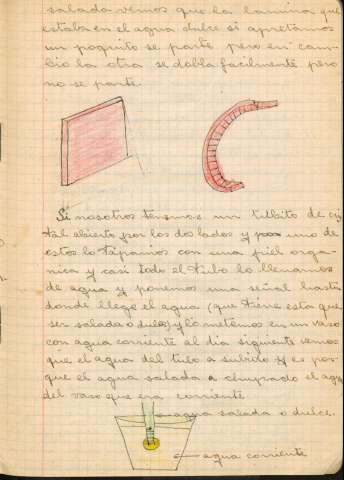 salada vemos que la lamina que
estaba en el agua dulce si apretamos
un poquito se parte pero en cam-
bio la otra se dobla facilmente pero
no se parte.
Si nosotros tenemos un tubito de cris
tal abierto por los dos lados y uno de
estos lo tapamos con una piel orga-
nica y casi todo el tubo lo llenamos
de agua y ponemos una señal hasta
donde llega el agua (que tiene esta que
ser salada o dulce) y lo metemos en un vaso
con agua corriente al dia siguiente vemos
que el agua del tubo a subido y es por-
que el agua salada a chupado el agua
del vaso que era corriente
agua salada o dulce.
agua corriente